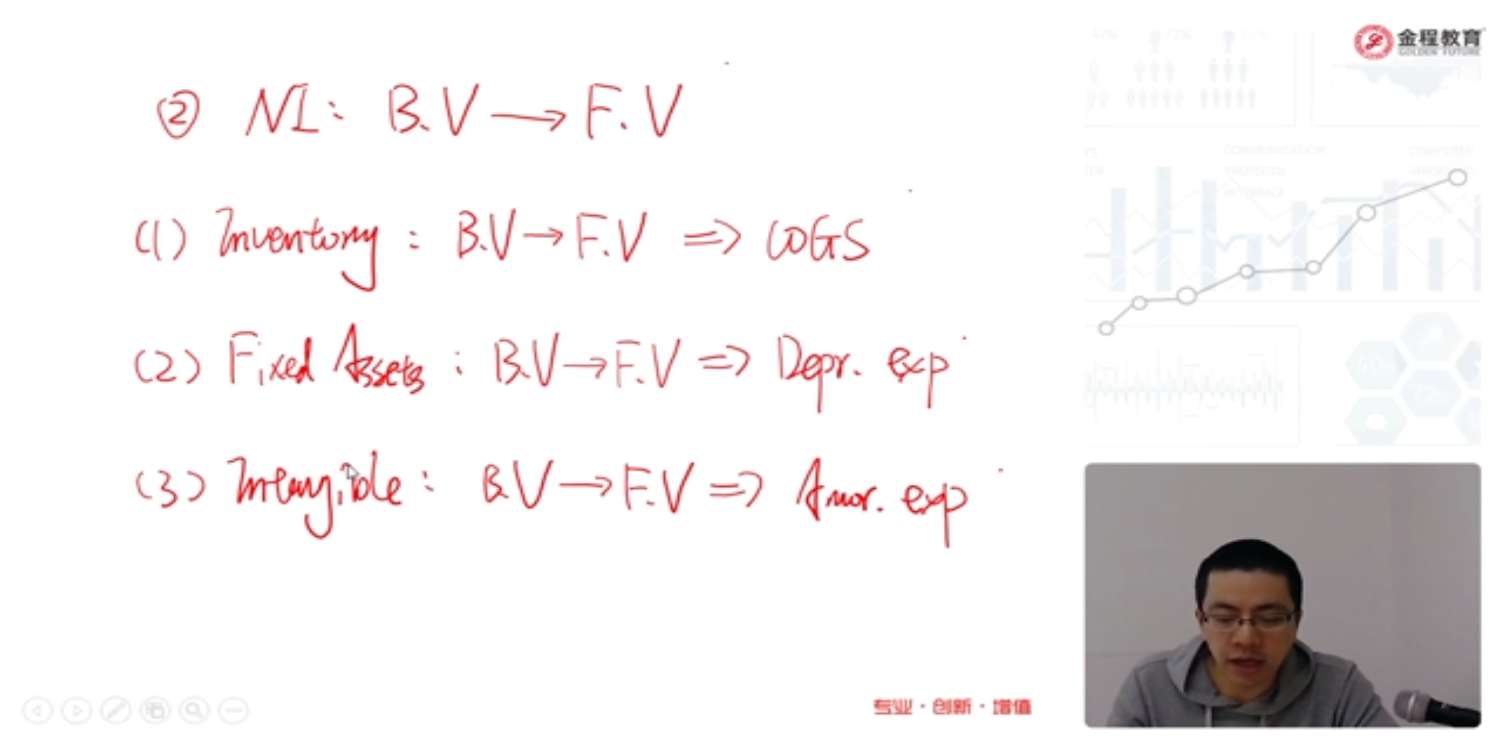 金程教育
GOLDEN FUTURE
② NI: B.V → F.V
(1) Inventory : B.V → F.V => COGS
(2) Fixed Assets : B.V → F.V => Depr. exp
(3) Intangible : B.V → F.V => Amor. exp
专业·创新·增值